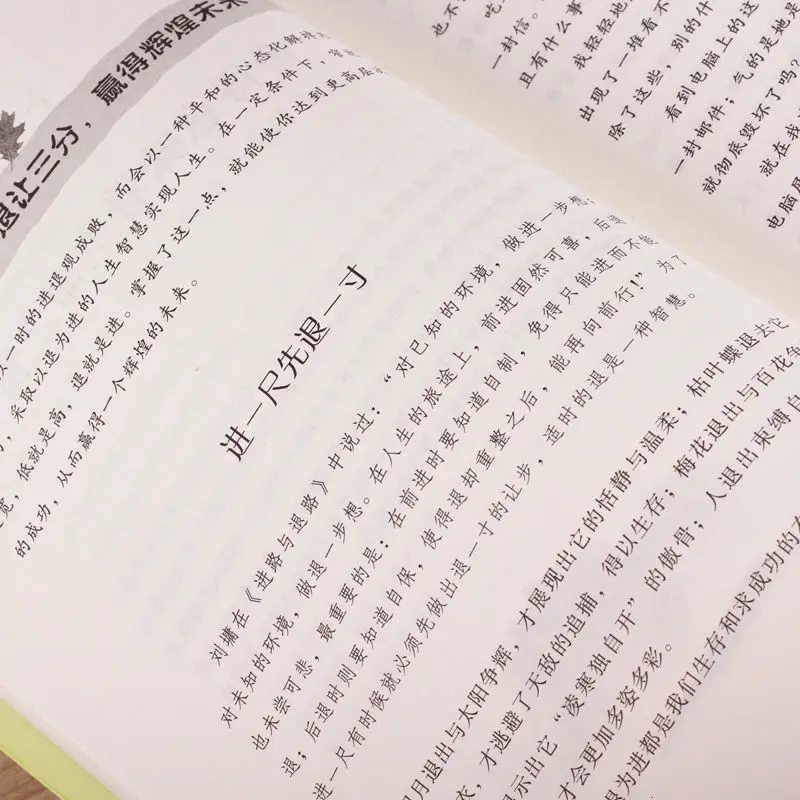 退让三分，赢得辉煌未来
以一时的进退观成败，而会以一种平和的心态化解
，采取以退为进的人生智慧实现人生。在一定条件下，窄
宽，低就是高，退就是进。掌握了这一点，就能使你达到更高层
的成功，从而赢得一个辉煌的未来。
进一尺先退一寸
刘墉在《进路与退路》中说过：“对已知的环境，做进一步想；
对未知的环境，做退一步想。在人生的旅途上，前进固然可喜，后退
也未尝可悲，最重要的是：在前进时要知道自制，免得只能进而不能
退；后退时则要知道自保，使得退却重整之后，能再向前行！”为了
进一尺有时候就必须先做出退一寸的让步，适时的退是一种智慧。
月退出与太阳争辉，才展现出它的恬静与温柔；枯叶蝶退去它
衣，才逃避了天敌的追捕，得以生存；梅花退出与百花争
显示出它“凌寒独自开”的傲骨；人退出束缚自
才会更加多姿多彩。
退为进都是我们生存和求成功的
也不
吃
一封信。
且有什么事
我轻轻地
出现了一堆看不
除了这些，别的什
看到电脑上的这
一封邮件；气的是她是
就彻底毁坏了吗？
就在我
电脑屏